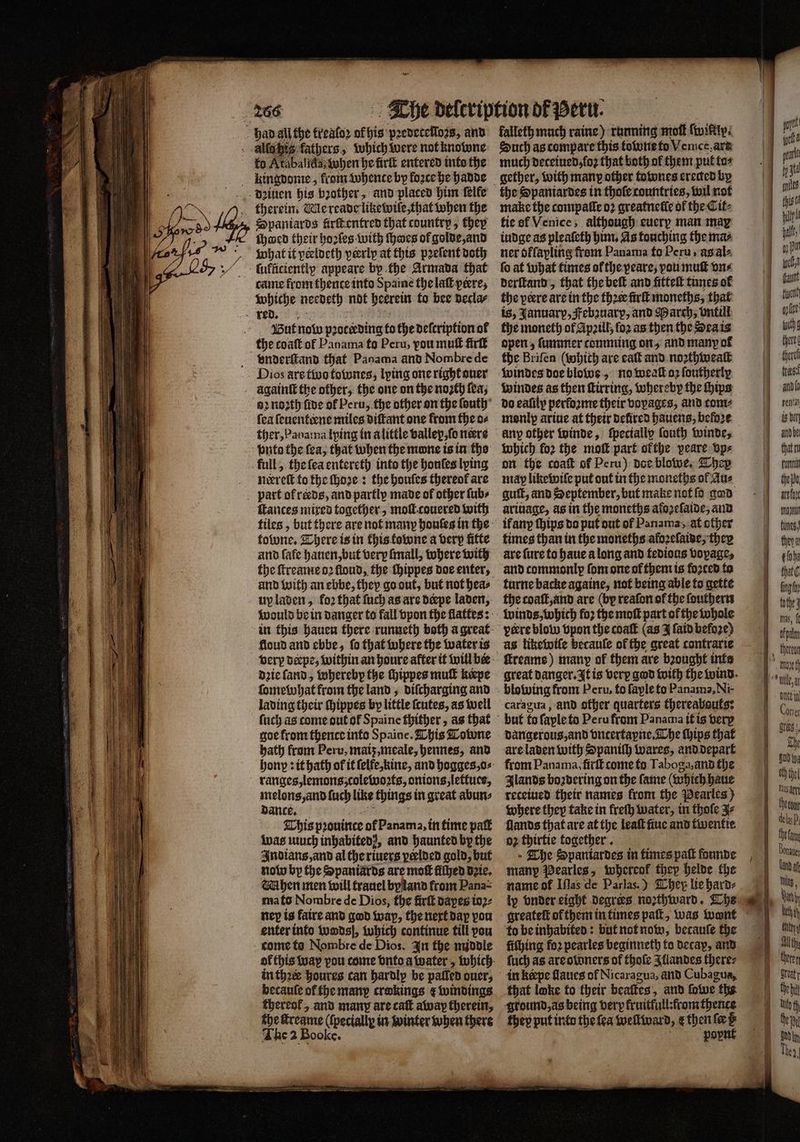 266 The description of Peru.
had all the treasor of his predecessors, and
also his fathers, which were not knowne
to Atabalida, when he first entered into the
kingdome, from whence by force he hadde
driuen his brother, and placed him selfe
therein. We reade likewise, that when the
Spaniards first entred that country, they
shooed their horses with shooes of golde, and
what it yeeldeth yeerly at this present doth
sufficiently appeare by the Armada that
came from thence into Spaine the last yeere,
whiche needeth not heerein to bee decla-
red.
But now proceeding to the description of
the coast of Panama to Peru, you must first
vnderstand that Panama and Nombre de
Dios are two townes, lying one right ouer
against the other, the one on the north sea,
or north side of Peru, the other on the south
sea seuenteene miles distant one from the o-
ther, Panama lying in a little valley, so neere
vnto the sea, that when the moone is in the
full, the sea entereth into the houses lying
neerest to the shore: the houses thereof are
part of reeds, and partly made of other sub-
stances mixed together, most couered with
tiles, but there are not many houses in the
towne. There is in this towne a very fitte
and safe hauen, but very small, where with
the streame or floud, the shippes doe enter,
and with an ebbe, they go out, but not hea-
uy laden, for that such as are deepe laden,
would be in danger to fall vpon the flattes:
in this hauen there runneth both a great
floud and ebbe, so that where the water is
very deepe, within an houre after it will bee
drie sand, whereby the shippes must keepe
somewhat from the land, discharging and
lading their shippes by little scutes, as well
such as come out of Spaine thither, as that
goe from thence into Spaine. This Towne
hath from Peru, maiz, meale, hennes, and
hony: it hath of it selfe, kine, and hogges, o-
ranges, lemons, coleworts, onions, lettuce,
melons, and such like things in great abun-
dance.
This prouince of Panama, in time past
was much inhabited, and haunted by the
Indians, and al the riuers yeelded gold, but
now by the Spaniards are most fished drie.
When men will trauel by land from Pana-
ma to Nombre de Dios, the first dayes ior-
ney is faire and good way, the next day you
enter into woods, which continue till you
come to Nombre de Dios. In the myddle
of this way you come vnto a water, which
in three houres can hardly be passed ouer,
because of the many crookings & windings
thereof, and many are cast away therein,
the streame (specially in winter when there
The 2 Booke.
falleth much raine) running most swiftly.
Such as compare this towne to Venice, are
much deceiued, for that both of them put to-
gether, with many other townes erected by
the Spaniardes in those countries, wil not
make the compasse or greatnesse of the Cit-
tie of Venice, although euery man may
iudge as pleaseth him. As touching the ma-
ner of sayling from Panama to Peru, as al-
so at what times of the yeare, you must vn-
derstand, that the best and fittest times of
the yeere are in the three first moneths, that
is, January, February, and March, vntill
the moneth of Aprill, for as then the Sea is
open, summer comming on, and many of
the Brisen (which are east and northweast
windes doe blowe, no weast or southerly
windes as then stirring, whereby the ships
do easily performe their voyages, and com-
monly ariue at their desired hauens, before
any other winde, specially south winde,
which for the most part of the yeare vp-
on the coast of Peru) doe blowe. They
may likewise put out in the moneths of Au-
gust, and September, but make not so good
ariuage, as in the moneths aforesaide, and
if any ships do put out of Panama, at other
times than in the moneths aforesaide, they
are sure to haue a long and tedious voyage,
and commonly som one of them is forced to
turne backe againe, not being able to gette
the coast, and are (by reason of the southern
winds, which for the most part of the whole
yeere blow vpon the coast (as I said before)
as likewise because of the great contrarie
streame) many of them are brought into
great danger. It is very good with the wind
blowing from Peru, to sayle to Panama, Ni-
caragua, and other quarters thereabouts:
but to sayle to Peru from Panama it is very
dangerous, and vncertayne. The ships that
are laden with Spanish wares, and depart
from Panama, first come to Taboga, and the
Ilands bordering on the same (which haue
receiued their names from the Pearles)
where they take in fresh water, in those I-
slands that are at the least fiue and twentie
or thirtie together.
The Spaniardes in times past founde
many Pearles, whereof they helde the
name of Islas de Parlas.) They lie hard-
ly vnder eight degrees northward. The
greatest of them in times past, was woont
to be inhabited: but not now, because the
fishing for pearles beginneth to decay, and
such as are owners of those Illandes there-
in keepe slaues of Nicaragua, and Cubagua,
that looke to their beastes, and sowe the
ground, as being very fruitfull: from thence
they put into the sea westward, & then see ye
poynt